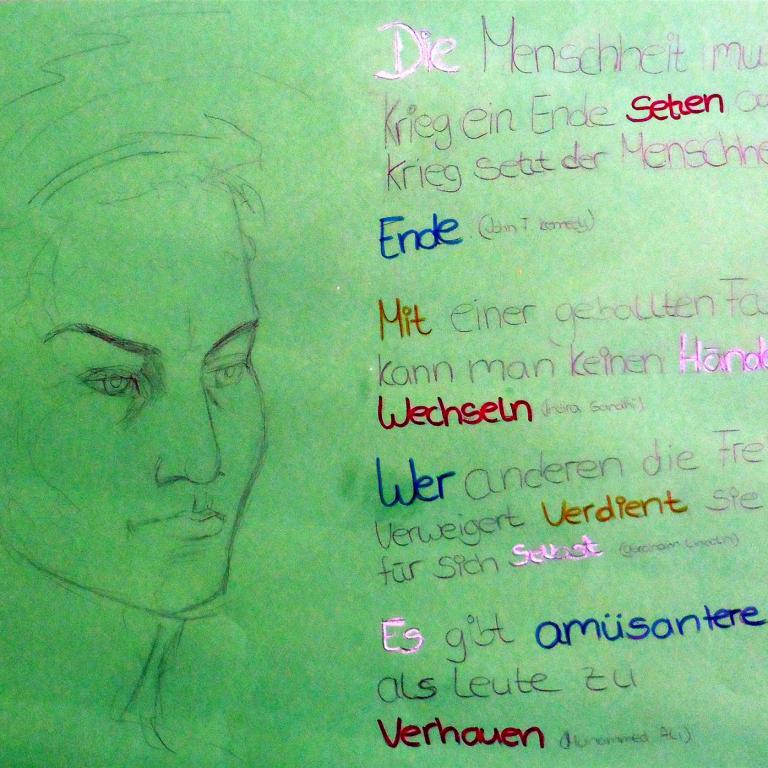 Die Menschheit mu
Krieg ein Ende setzen o
Krieg setzt der Menschhe
Ende (John F. Kennedy)
Mit einer geballten Fa
kann man keinen Händ
Wechseln (Indira Gandhi)
Wer anderen die Frei
Verweigert Verdient sie
für sich Selbst (Abraham Lincoln)
Es gibt amüsantere
als Leute zu
Verhauen (Muhammed Ali)